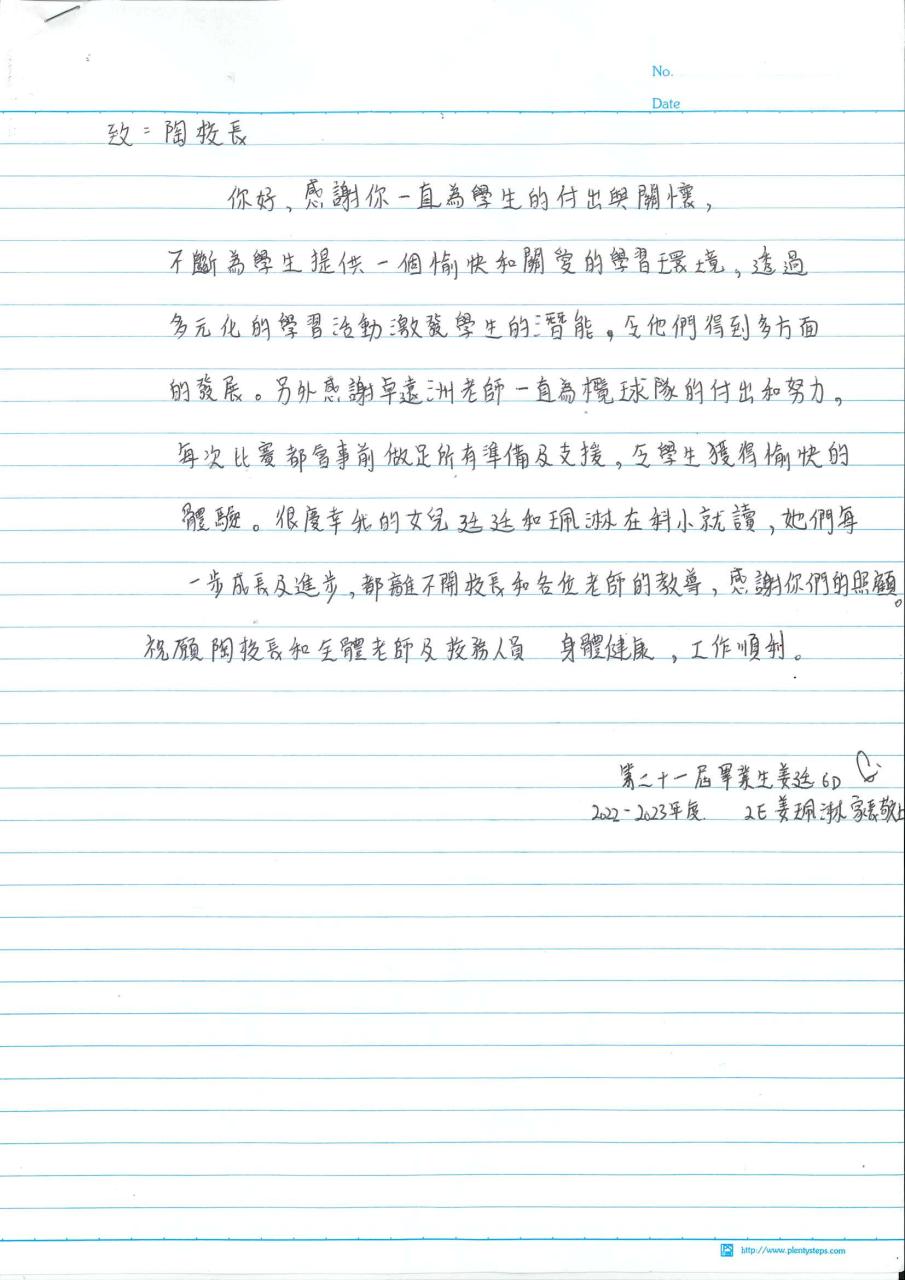 No.
Date
致：陶校長
你好、感謝你一直為學生的付出與關懷，
不斷為學生提供一個愉快和關愛的學習環境，透過
多元化的學習活動激發學生的潛能，令他們得到多方面
的發展。另外感謝卓遠洲老師一直為欖球隊的付出和努力，
每次比賽都會事前做足所有準備及支援，令學生獲得愉快的
體驗。很慶幸我的女兒廷廷和珮淋在科小就讀，她們每
一步成長及進步，都離不開校長和各位老師的教導，感謝你們的照顧。
祝願陶校長和全體老師及教務人員 身體健康，工作順利。
第二十一屆畢業生姜廷6D
2022-2023年度 2E姜珮淋家長敬上
http://www.plentysteps.com